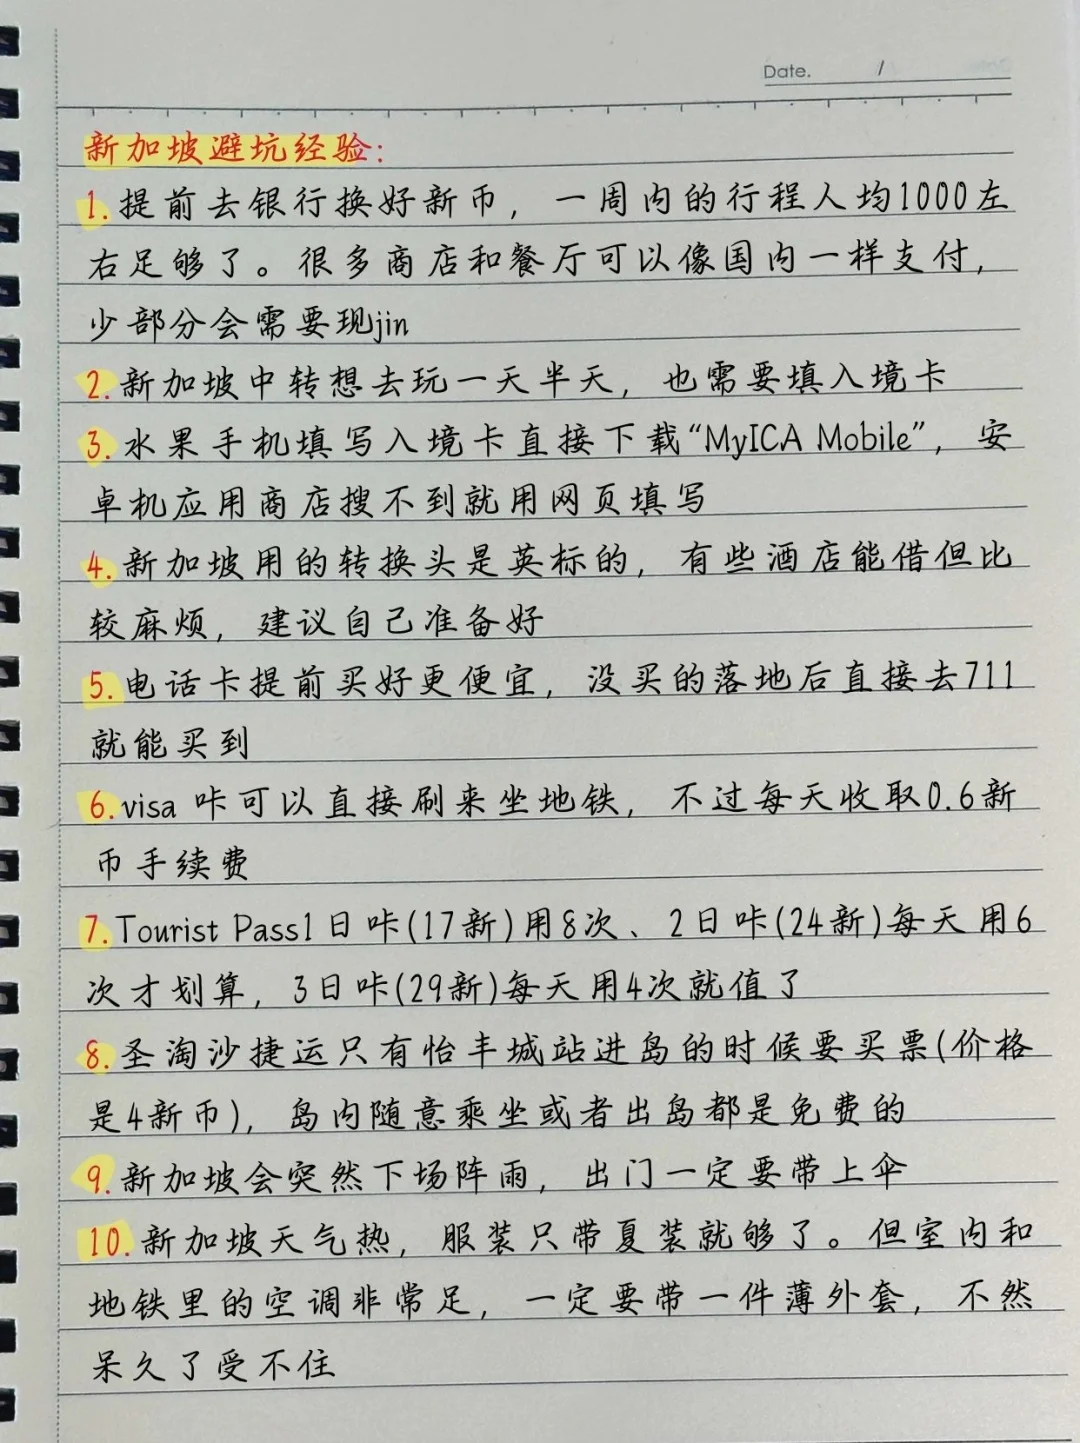 Date. /
新加坡避坑经验:
1.提前去银行换好新币，一周内的行程人均1000左
右足够了。很多商店和餐厅可以像国内一样支付，
少部分会需要现jin
2.新加坡中转想去玩一天半天，也需要填入境卡
3.水果手机填写入境卡直接下载“MyICA Mobile”，安
卓机应用商店搜不到就用网页填写
4.新加坡用的转换头是英标的，有些酒店能借但比
较麻烦，建议自己准备好
5.电话卡提前买好更便宜，没买的落地后直接去711
就能买到
6.visa 咔可以直接刷来坐地铁，不过每天收取0.6新
币手续费
7.Tourist Pass1日咔(17新)用8次、2日咔(24新)每天用6
次才划算，3日咔(29新)每天用4次就值了
8.圣淘沙捷运只有怡丰城站进岛的时候要买票(价格
是4新币)，岛内随意乘坐或者出岛都是免费的
9.新加坡会突然下场阵雨，出门一定要带上伞
10.新加坡天气热，服装只带夏装就够了。但室内和
地铁里的空调非常足，一定要带一件薄外套，不然
呆久了受不住